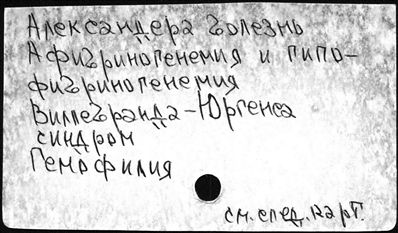 Александера болезнь
Афибриногенемия и гипо-
фибриногенемия
Виллебранда-Юргенса
синдром
Гемофилия
см. след. карт.